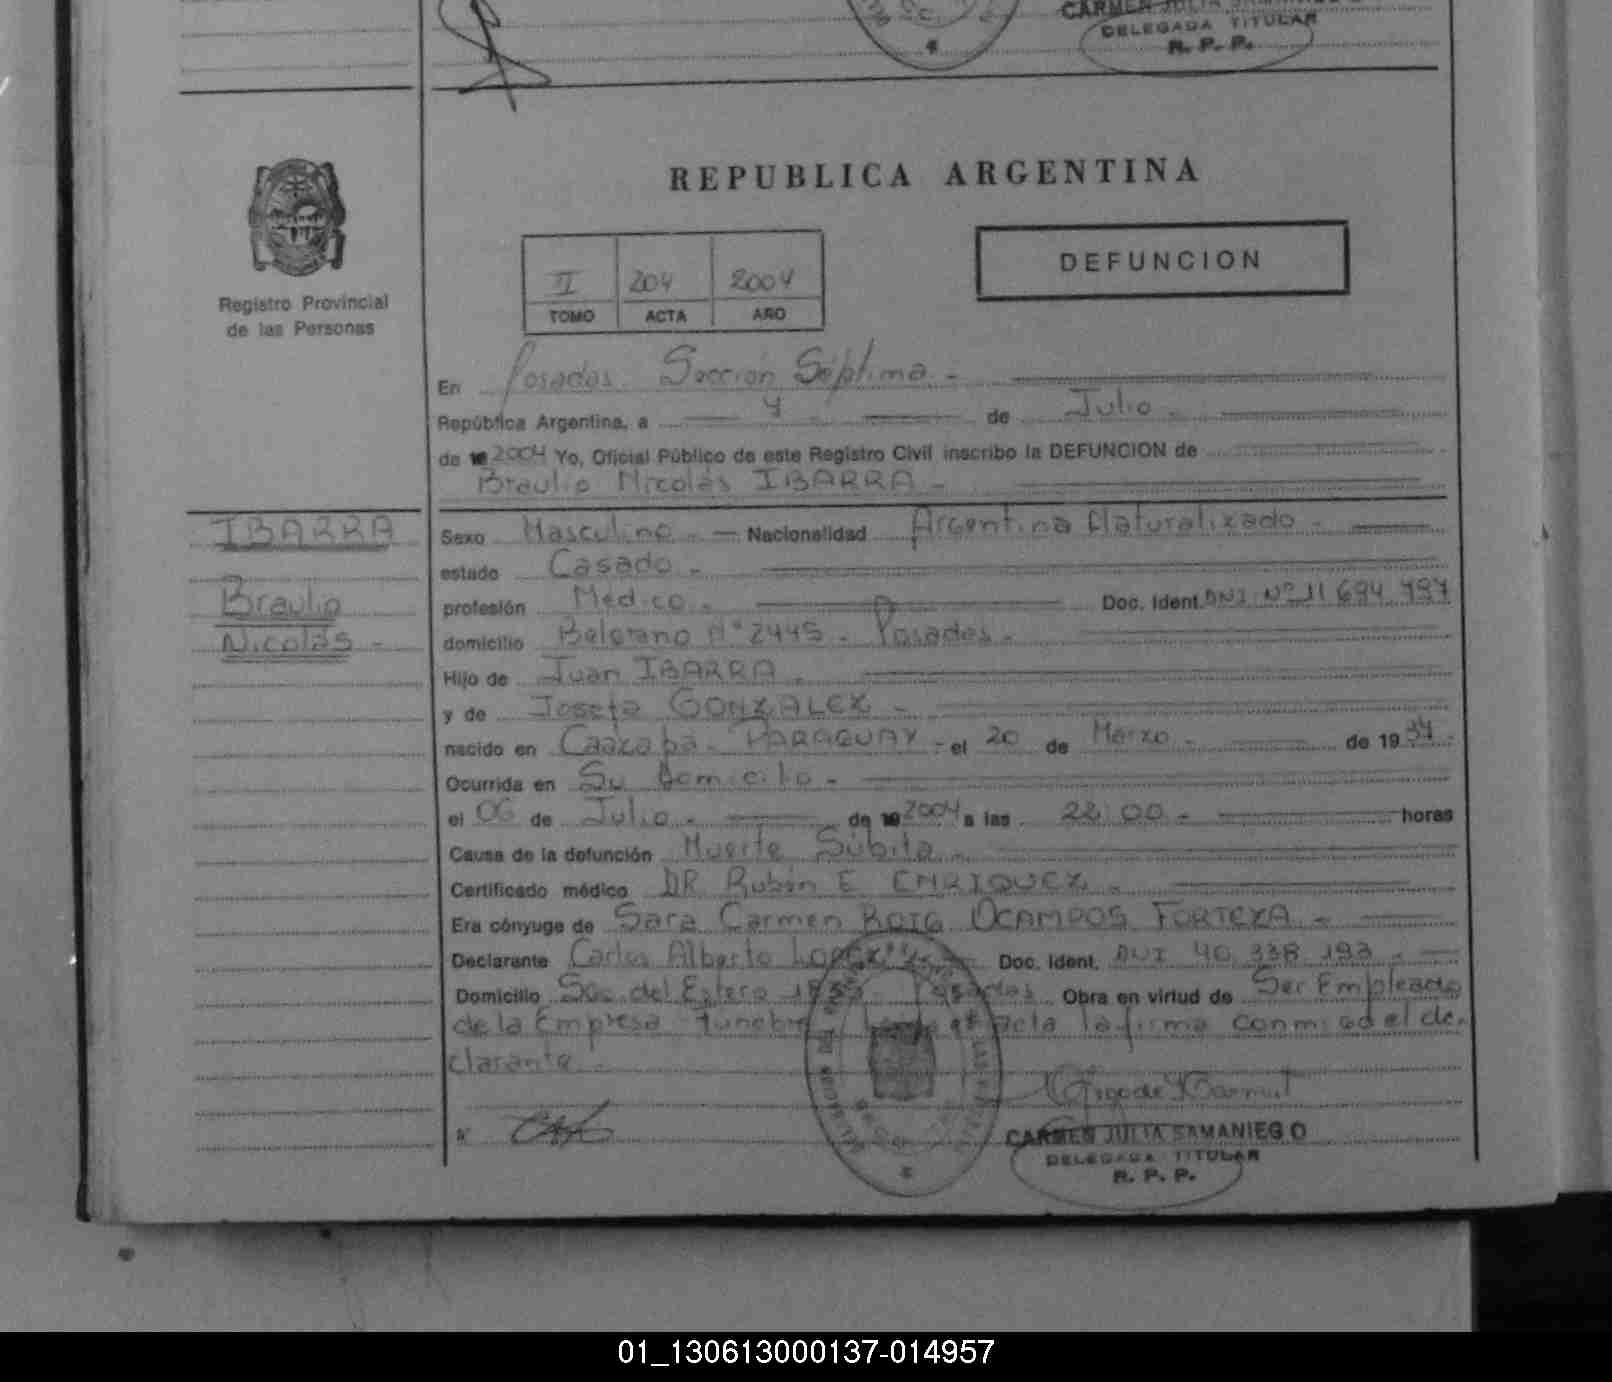 CARMEN JULIA SAMANIEGO
DELEGADA TITULAR
R. P. P.
REPUBLICA ARGENTINA
DEFUNCION
II 204 2004
TOMO ACTA AÑO
Registro Provincial
de las Personas
En Posadas Sección Séptima -
República Argentina, a de Julio -
de 2004 Yo, Oficial Público de este Registro Civil inscribo la DEFUNCION de
Braulio Nicolás IBARRA -
IBARRA
Braulio
Nicolás -
Sexo Masculino - Nacionalidad Argentina Naturalizado -
estado Casado -
profesión Médico - Doc. Ident. DNI Nº 11 694 797
domicilio Belgrano Nº 2445 - Posadas -
Hijo de Juan IBARRA -
y de Josefa GONZALEZ -
nacido en Caazapá - PARAGUAY - el 20 de Marzo - de 1934 -
Ocurrida en Su Domicilio -
el 06 de Julio - de 2004 a las 22:00 - horas
Causa de la defunción Muerte Súbita -
Certificado médico DR Rubén E ENRIQUEZ -
Era cónyuge de Sara Carmen ROIG OCAMPOS FORTEZA -
Declarante Carlos Alberto Doc. Ident. DNI 40 338 193 -
Domicilio Sgo. del Estero Posadas Obra en virtud de Ser Empleado
de la Empresa Funebre acta la firma conmigo el de-
clarante -
CARMEN JULIA SAMANIEGO
DELEGADA TITULAR
R. P. P.
01_130613000137-014957